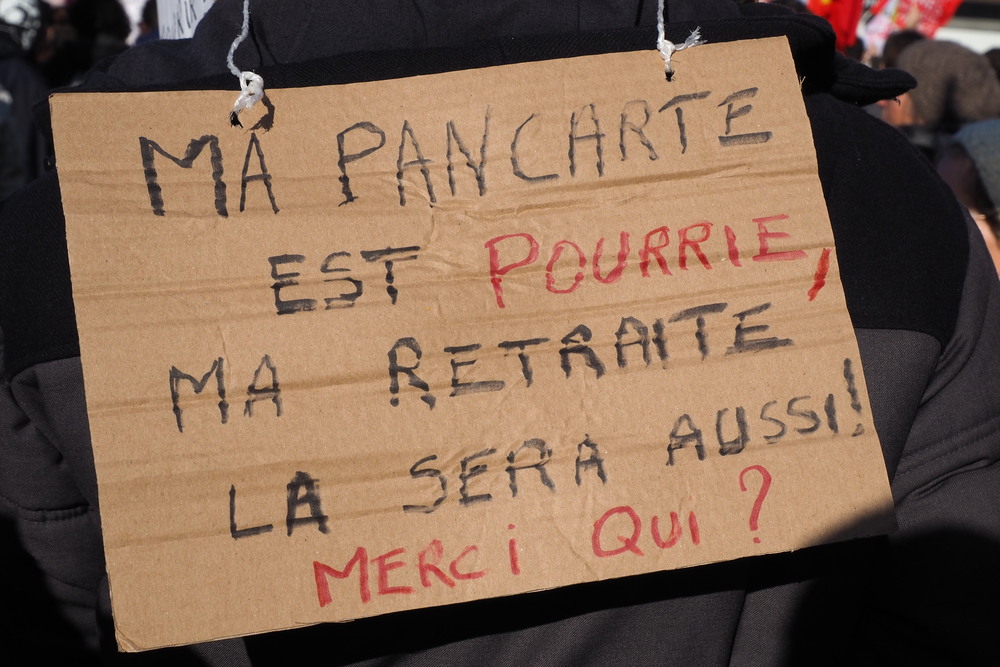 MA PANCARTE
EST POURRIE,
MA RETRAITE
LA SERA AUSSI!
MERCi QUI ?